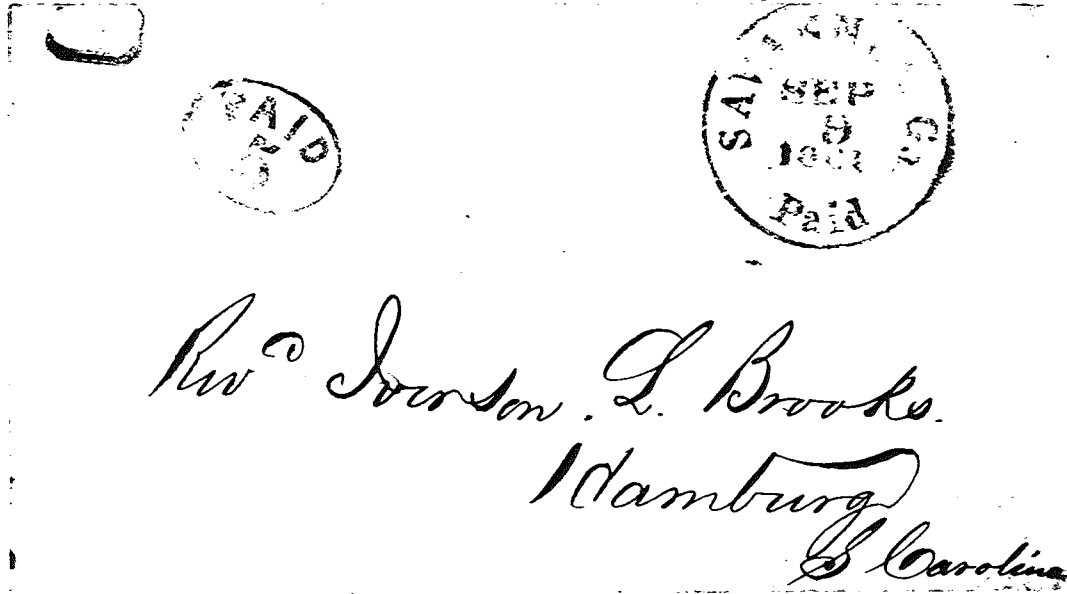 PAID
5
SAVANNAH Ga
SEP
Paid
Revd Iverson. L. Brooks.
Hamburg
S Carolina